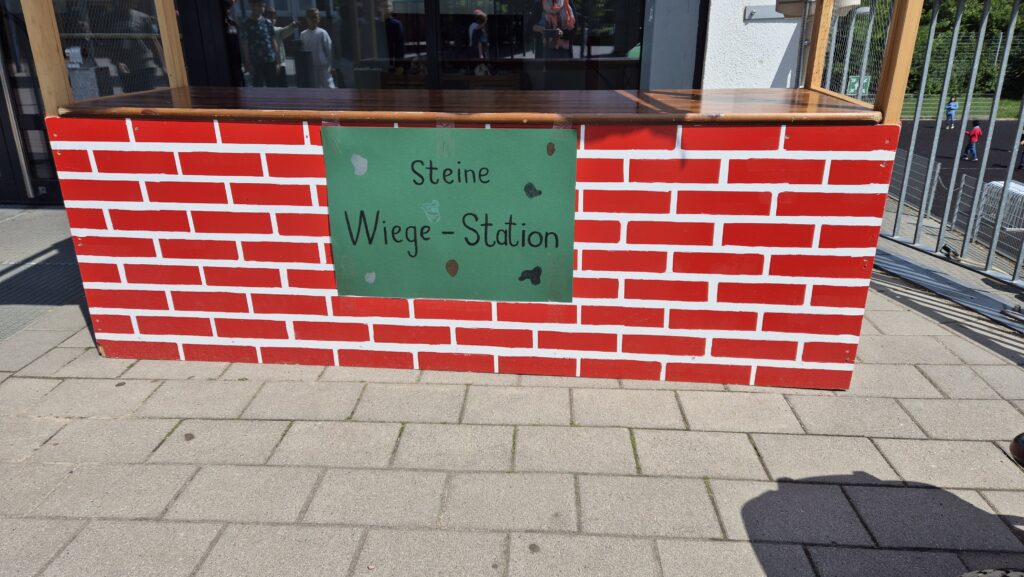 Steine
Wiege-Station